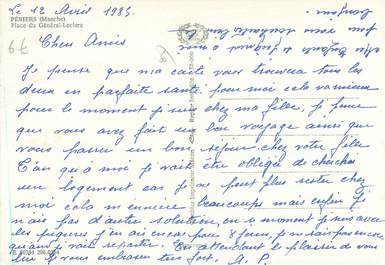 Le 12 Avril 1983.
PÉRIERS (Manche)
Place du Général-Leclerc
67
Chers Amis
Je pense que ma carte vous trouvera tous les
deux en parfaite santé, pour moi cela va mieux
pour le moment je suis chez ma fille, je pense
que vous avez fait un bon voyage ainsi que
vous passer un bon séjour chez votre fille
Tan qu'à moi je vais être obligée de chercher
un logement car je ne peut plus rester chez
moi cela m'ennuie beaucoups mais enfin je
n'ais pas d'autre solution, en ce moment j'suis avec
les piqures j'en ais encore pour 8 jours, je ne sais pas encore
quand je vais repartir. En attendant le plaisir de vous
lire je vous embrasse très fort. A. P.